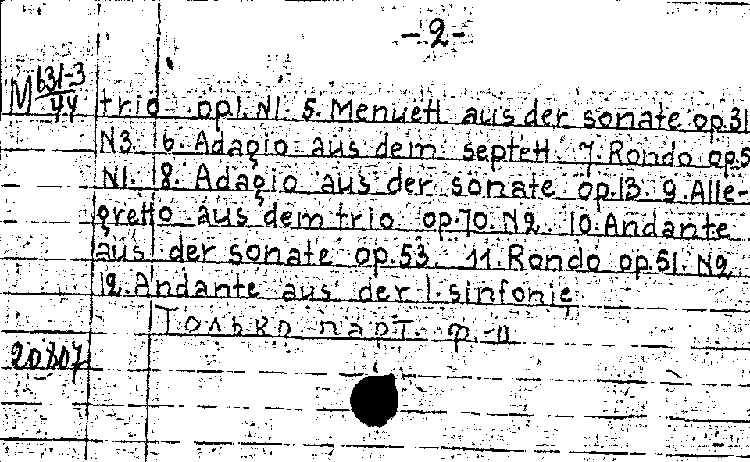 -2-
M 631-3
44
trio op1. N1. 5. Menuett aus der sonate op.31
N3. 6. Adagio aus dem septett. 7. Rondo op.5
N1. 8. Adagio aus der sonate op.13. 9. Alle-
gretto aus dem trio op.70. N2. 10. Andante
aus der sonate op.53. 11. Rondo op.51. N2
12. Andante aus der 1. sinfonie
Только парт. ф.-п.
20807